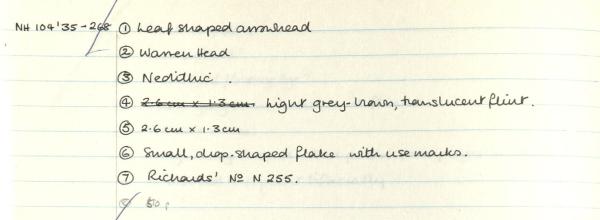 NH 104'35-268 ① Leaf shaped arrowhead
② Warren Head
③ Neolithic .
④ 2.6 cm x 1.3 cm. Light grey-brown, translucent flint.
⑤ 2.6 cm x 1.3 cm
⑥ Small, drop-shaped flake with use marks.
⑦ Richards' No N 255.